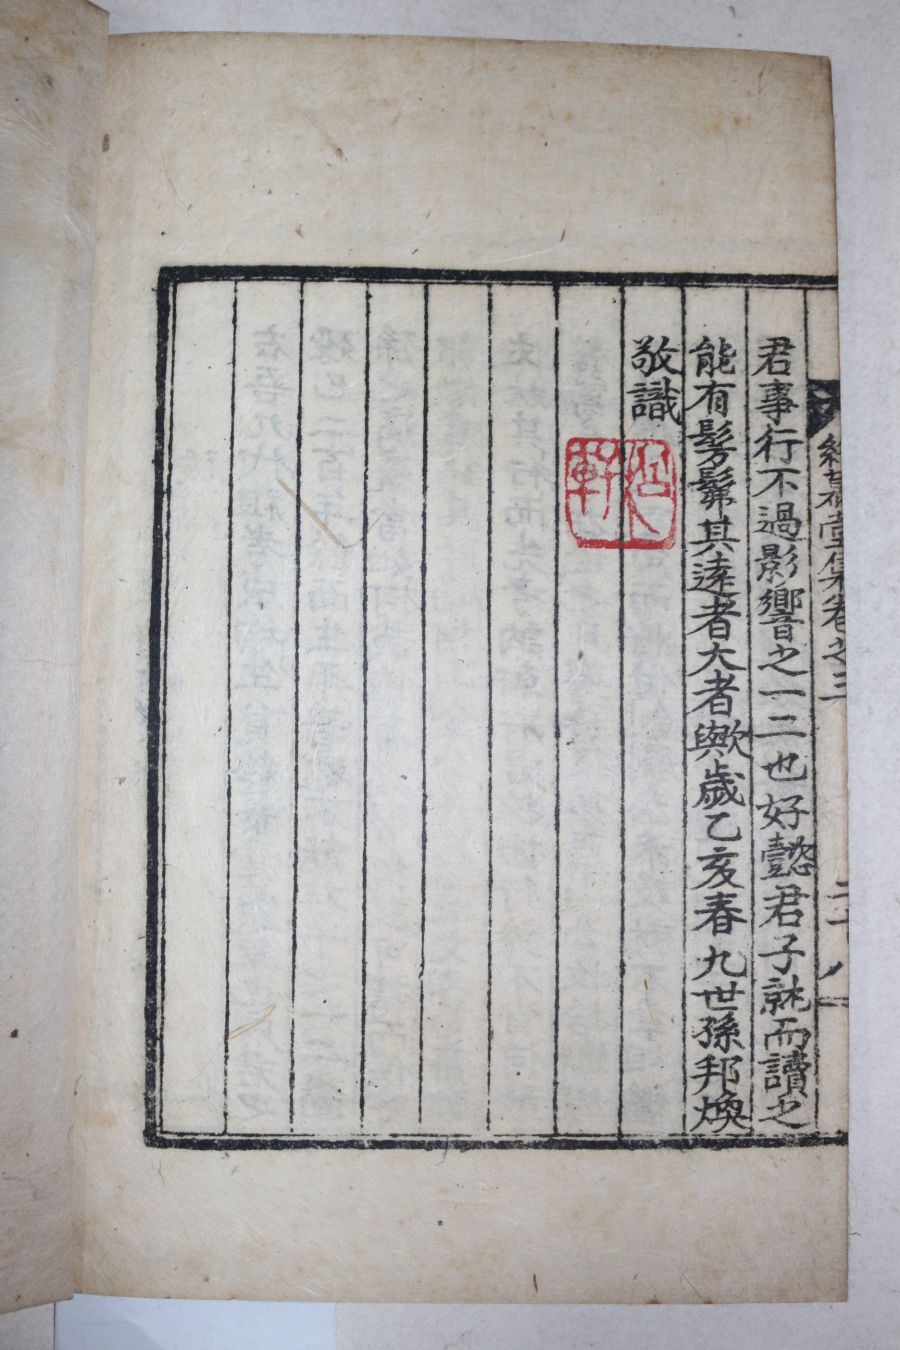 堂集卷之三
君事行不過影響之一二也好懿君子就而讀之
能有髣髴其遠者大者歟歲乙亥春九世孫邦煥
敬識
軒